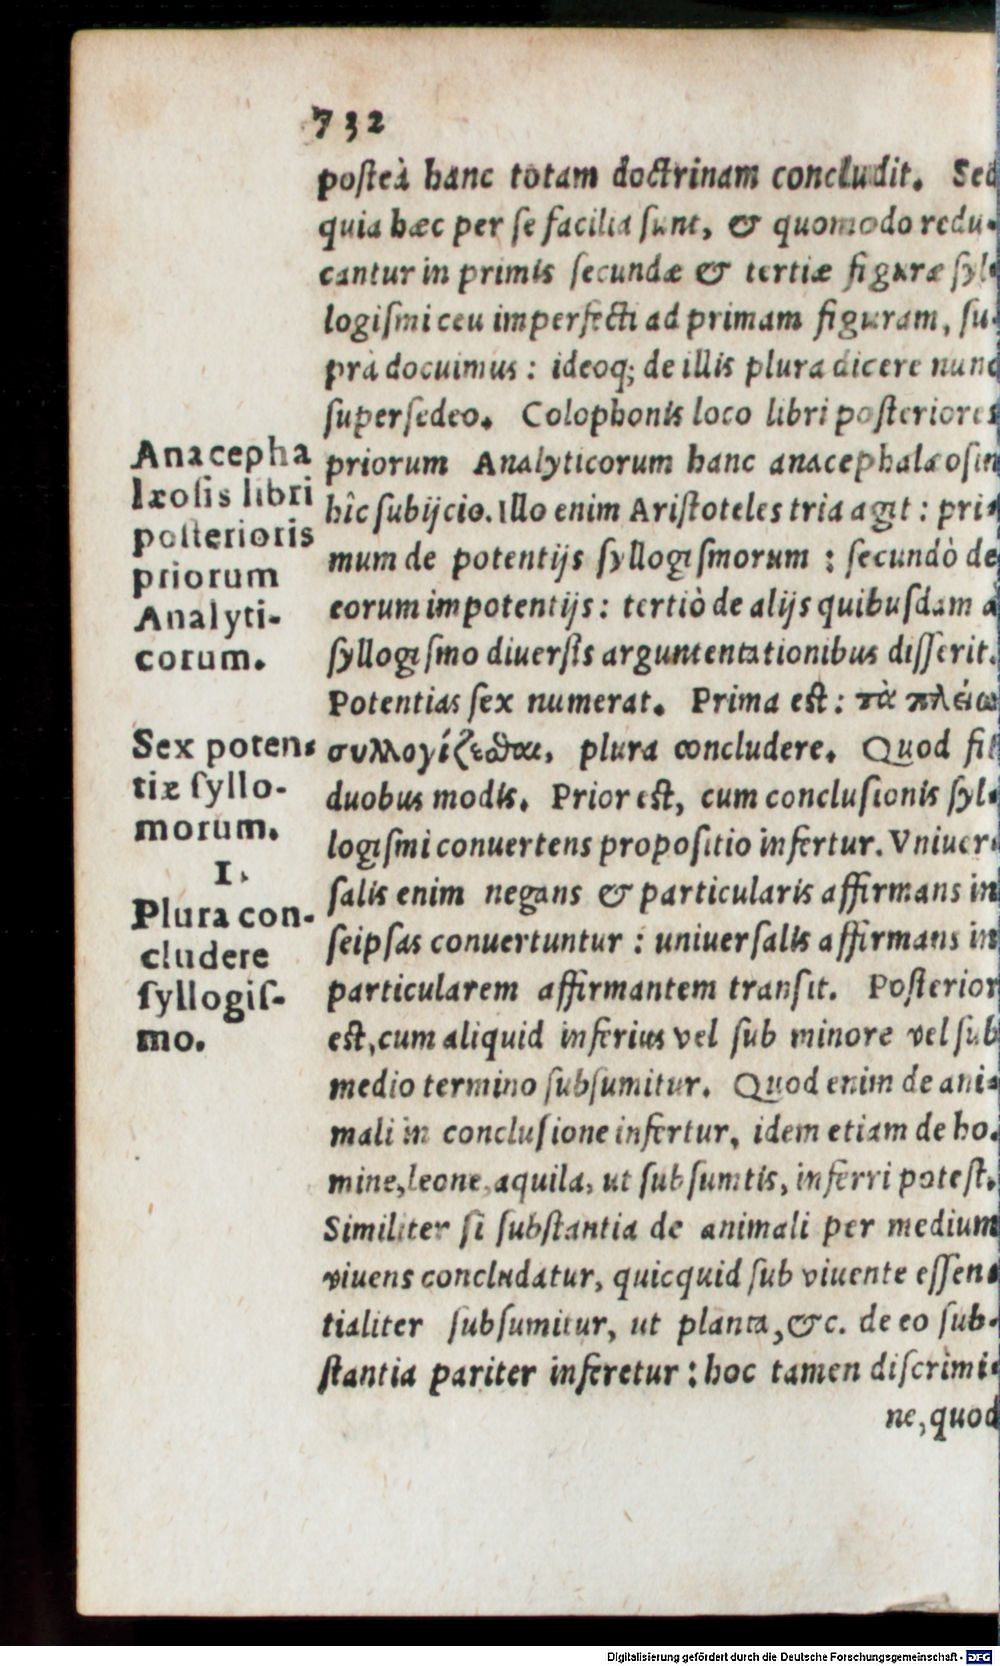 732
posteà hanc totam doctrinam concludit. Sed
quia hæc per se facilia sunt, & quomodo redu-
cantur in primis secundæ & tertiæ figuræ syl-
logismi ceu imperfecti ad primam figuram, su-
prà docuimus: ideoq; de illis plura dicere nunc
supersedeo. Colophonis loco libri posteriores
priorum Analyticorum hanc anacephalæosin
hîc subijcio. Illo enim Aristoteles tria agit: pri-
mum de potentijs syllogismorum: secundò de
eorum impotentijs: tertiò de alijs quibusdam a
syllogismo diuersis arguntentationibus disserit.
Potentias sex numerat. Prima est: τὰ πλείω
συλλογίζεσθαι, plura concludere. Quod fit
duobus modis. Prior est, cum conclusionis syl-
logismi conuertens propositio infertur. Vniuer-
salis enim negans & particularis affirmans in
seipsas conuertuntur: uniuersalis affirmans in
particularem affirmantem transit. Posterior
est, cum aliquid inferius vel sub minore vel sub
medio termino subsumitur. Quod enim de ani-
mali in conclusione infertur, idem etiam de ho-
mine, leone, aquila, ut subsumtis, inferri potest.
Similiter si substantia de animali per medium
viuens concludatur, quicquid sub viuente essen-
tialiter subsumitur, ut planta, &c. de eo sub-
stantia pariter inferetur: hoc tamen discrimi-
ne, quod
Anacepha
læosis libri
posterioris
priorum
Analyti-
corum.
Sex poten-
tiæ syllo-
morum.
I.
Plura con-
cludere
syllogis-
mo.
Digitalisierung gefördert durch die Deutsche Forschungsgemeinschaft - DFG